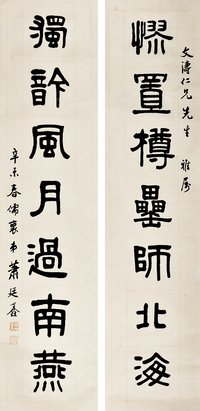 文濤仁兄先生 雅屬
置樽罍師北海
獨䪩風月過南燕
辛未春儒襄弟蕭廷